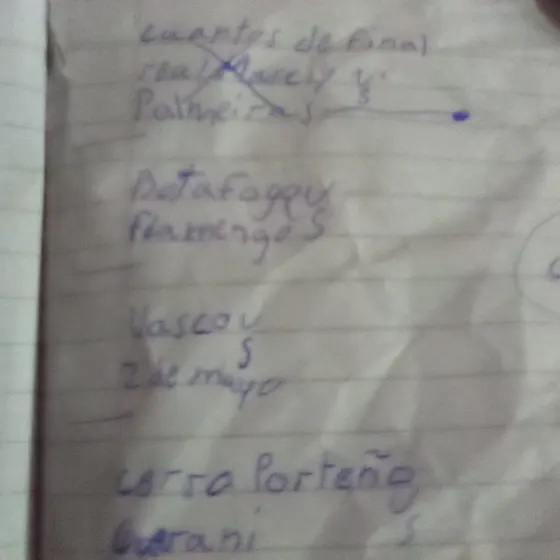 cuartos de final
real v
s
Palmeiras
Botafogo v
Flamengo s
Vasco v
s
2 de mayo
cerro Porteño
Guarani s